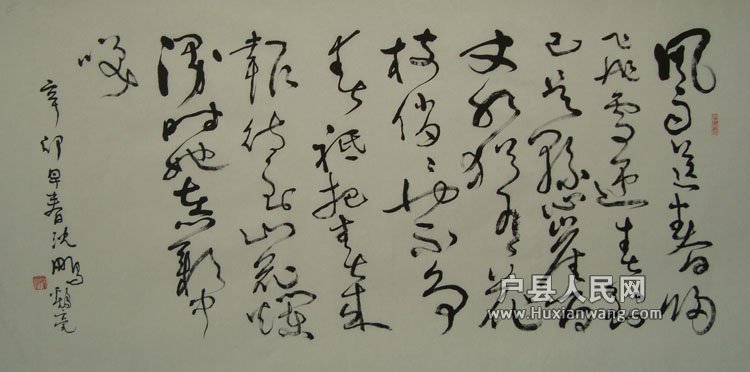 風雨送春歸
飛雪迎春到
已是懸崖百
丈冰猶有花
枝俏〻也不爭
春祇把春來
報待到山花爛
漫時她在叢中
咲
辛卯早春沈鵬
户县人民网
www.Huxianwang.com